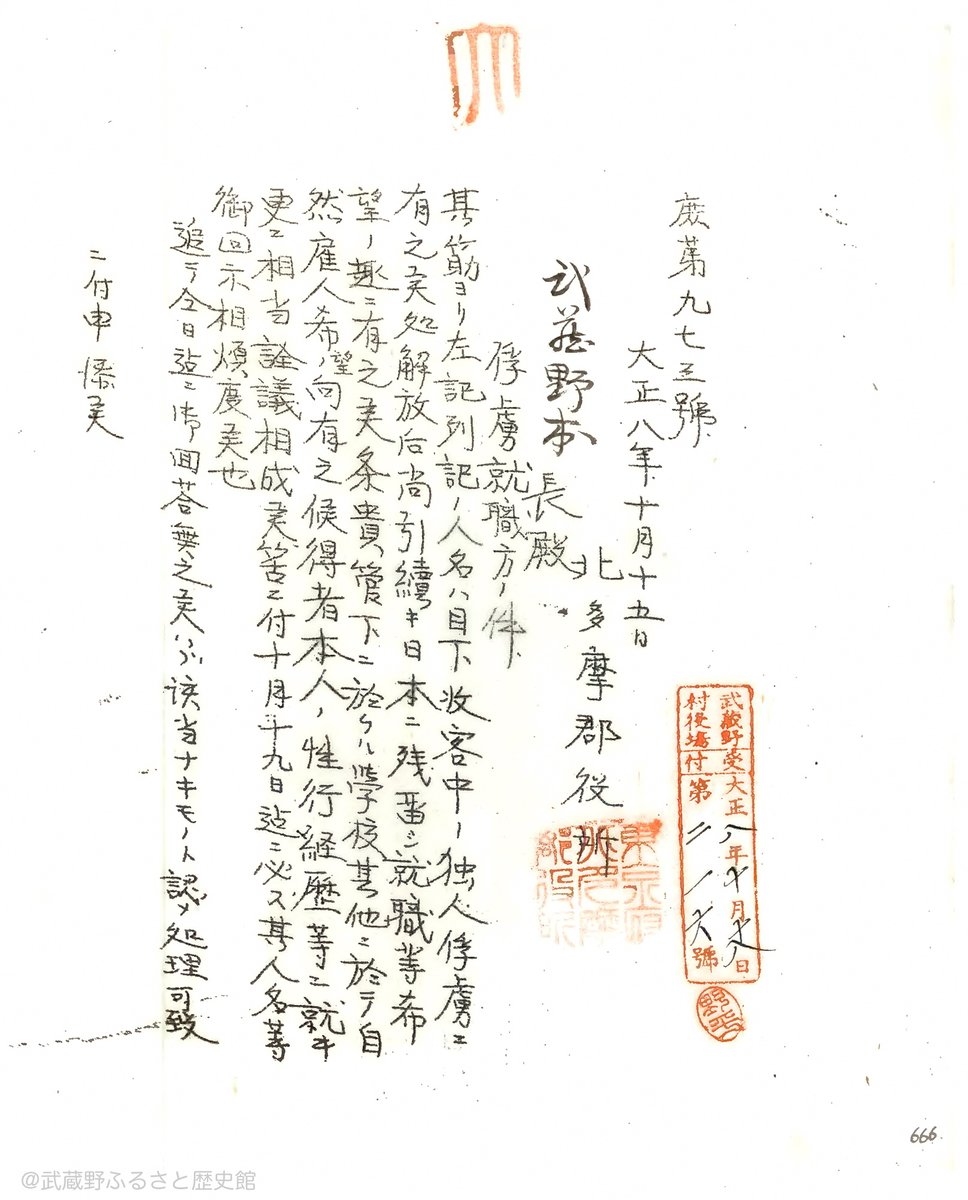 庶第九七三號
大正八年十月十五日
北多摩郡役所
武蔵野村長殿
俘虜就職方ノ件
其筋ヨリ左記列記ノ人名ハ目下收容中ノ独人俘虜ニ
有之候処解放后尚引續キ日本ニ残畄シ就職等希
望ノ趣ニ有之候条貴管下ニ於ケル学校其他ニ於テ自
然雇人希望ノ向有之候得者本人ノ性行経歴等ニ就キ
更ニ相当詮議相成候筈ニ付十月廿九日迠ニ必ス其人名等
御回示相煩度候也
追テ今日迠ニ御回答無之候ハヾ該当ナキモノト認メ処理可致
ニ付申添候
武蔵野村役場
受付
大正八年十月十八日
第二一六號
666
@武蔵野ふるさと歴史館